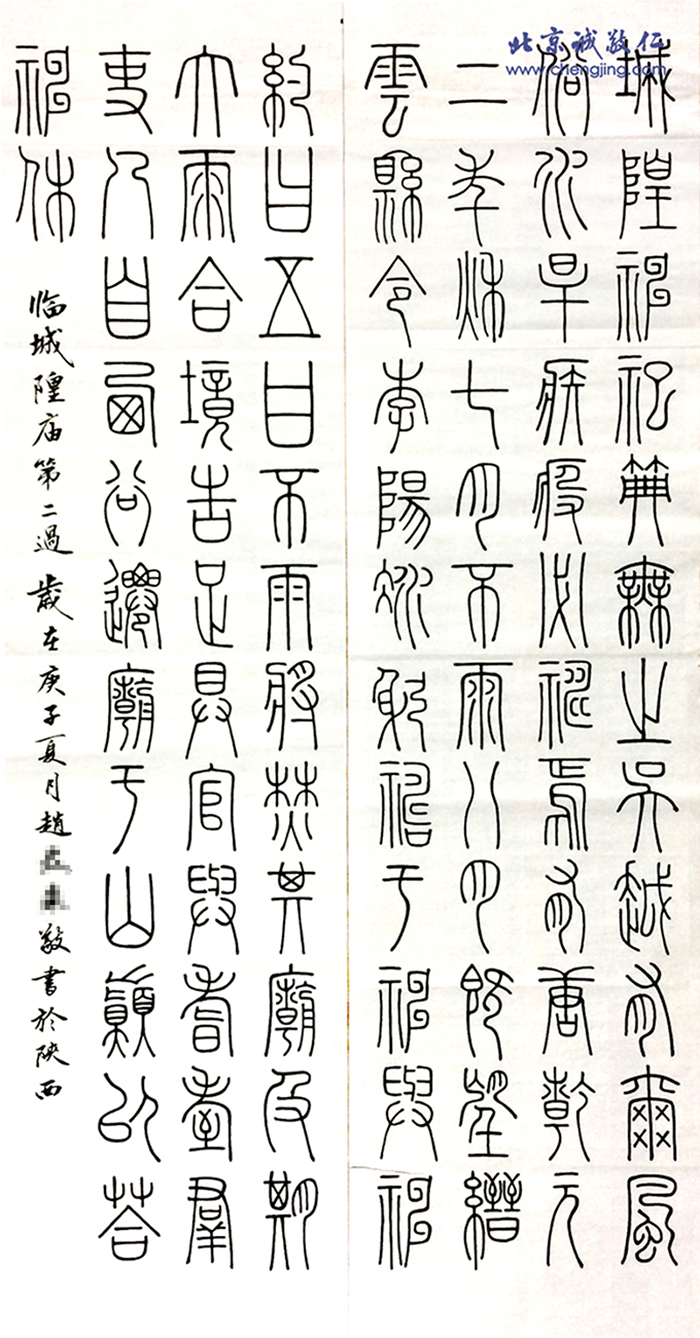 北京诚敬仁
www.chengjing.com
城隍神祀典無之吳越有爾風
俗水旱疾疫必禱焉有唐乾元
二年秋七月不雨八月既望縉
雲縣令李陽冰躬禱于神與神
約曰五日不雨將焚其廟及期
大雨合境告足具官與耆耋羣
吏乃自西谷遷廟于山顛以荅
神休
临城隍庙第二過 歲在庚子夏月趙 敬書於陝西